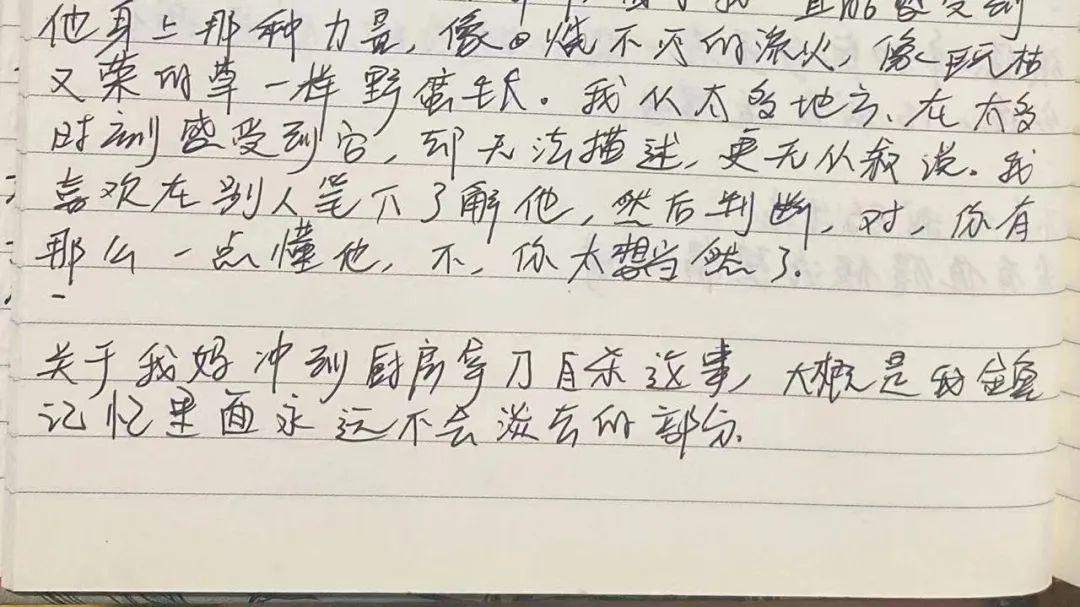 且能感受到
他身上那种力量，像烧不灭的流火，像既枯
又荣的草一样野蛮生长。我从太多地方、在太多
时刻感受到它，却无法描述，更无从叙说。我
喜欢在别人笔下了解他，然后判断，对，你有
那么一点懂他，不，你太想当然了。
关于我妈冲到厨房拿刀自杀这事，大概是我
记忆里面永远不会淡去的部分。